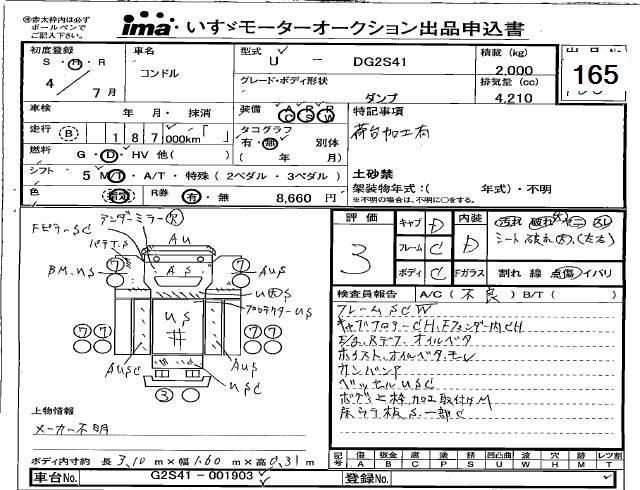 ㊟赤太枠内は必ず
ボールペンで
ご記入下さい。
ima いすゞモーターオークション出品申込書
初度登録
S・H・R
4／7月
車名
コンドル
型式
U － DG2S41
積載 (kg)
2,000
165
グレード・ボディ形状
ダンプ
排気量 (cc)
4,210
車検 年 月・ 抹消
装備 A S R C S W
特記事項
荷台加工有
走行 B 187,000km
タコグラフ
有・無 別体
( 年 月)
燃料 G・D・HV 他( )
シフト 5 MT・A/T・特殊 (2ペダル・3ペダル)
土砂禁
架装物年式：( 年式)・不明
※不明の場合は、不明に○をする。
色 R券 有・無 8,660 円
アンダーミラーR
FピラーSC
パテヌS
AU
BM.US
AS
AUS
US
AUSC
AUS
USC
⑦ ⑦
⑦⑦ ⑦⑦
③
上物情報
メーカー不明
ボディ内寸約 長 3.10 m×幅 1.60 m×高 0.31 m
車台No. G2S41－001903
評価
3
キャブ D
フレーム C
ボディ C
内装 D
Fガラス
汚れ 破れ ヤニ スレ
シート破れ大(左右)
割れ 線 点傷 イバリ
検査員報告 A/C( 不良 ) B/T( )
フレームSCW
キャブフロアーCH.Fフェンダー内CH
E/g.Rデフ.オイルベタ
ホイスト.オイルベタ.モレ
サンバンP
ベッセルUSC
ボデー上枠加工取付けM
床ウラ板S.一部C
記号 傷 板金 腐 塗 錆 凹凸曲 波 穴 跡 レツ割
A B C P S U W H M T
登録No.